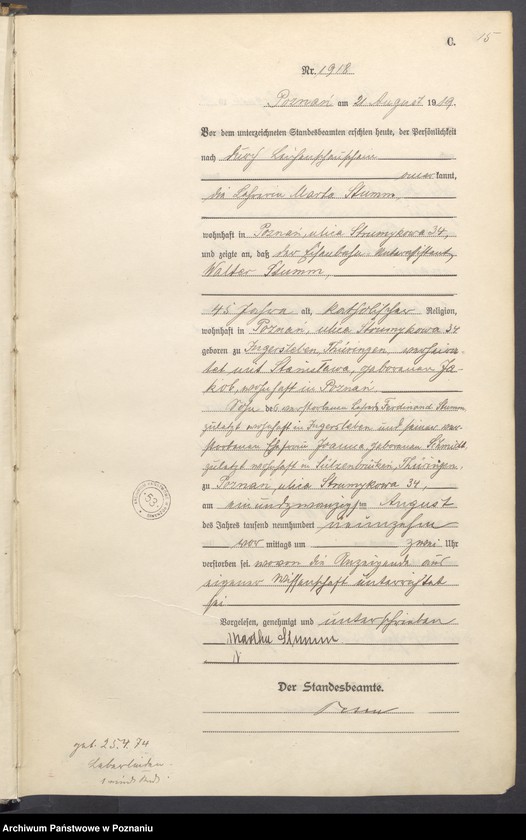 C. 15
Nr. 1918.
Poznań am 21 August 1919.
Vor dem unterzeichneten Standesbeamten erschien heute, der Persönlichkeit
nach durch Leichenschauschein
anerkannt,
die Lehrerin Marta Stumm,
wohnhaft in Poznań, ulica Strumykowa 34,
und zeigte an, daß der Eisenbahn-Unterassistent
Walter Stumm,
45 Jahre alt, katholischer Religion,
wohnhaft in Poznań, ulica Strumykowa 34
geboren zu Ingersleben, Thüringen, verheira-
tet mit Stanisława, geborenen Ja-
kob, wohnhaft in Poznań.
Sohn des verstorbenen Ferdinand Stumm
zuletzt wohnhaft in Ingersleben und seiner ver-
storbenen Ehefrau Joanna, geborenen Schmidt
zuletzt wohnhaft in Sülzenbrücken, Thüringen.
zu Poznań, ulica Strumykowa 34,
am einundzwanzigsten August
des Jahres tausend neunhundert neunzehn
vor mittags um zwei Uhr
verstorben sei. wovon die Anzeigende aus
eigener Wissenschaft unterrichtet
sei
Vorgelesen, genehmigt und unterschrieben
Martha Stumm
Der Standesbeamte.
53
gest. 25.4.74
Archiwum Państwowe w Poznaniu